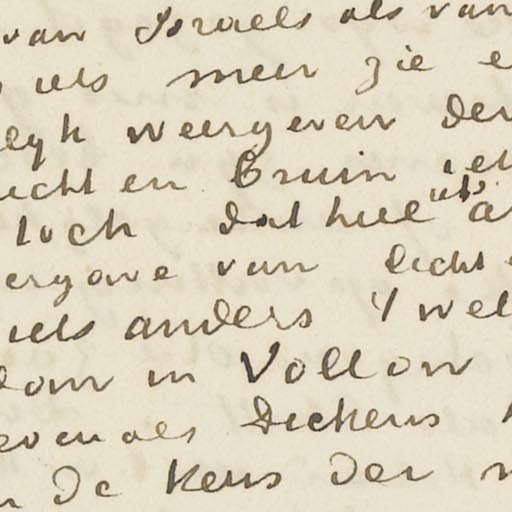 van Israels als van
iets meer zie e
weergeven der
licht en bruin iet
toch dat heele
ergave van licht
iets anders 't wel
dom in Vollon
evenals Dickens
n de keus der m